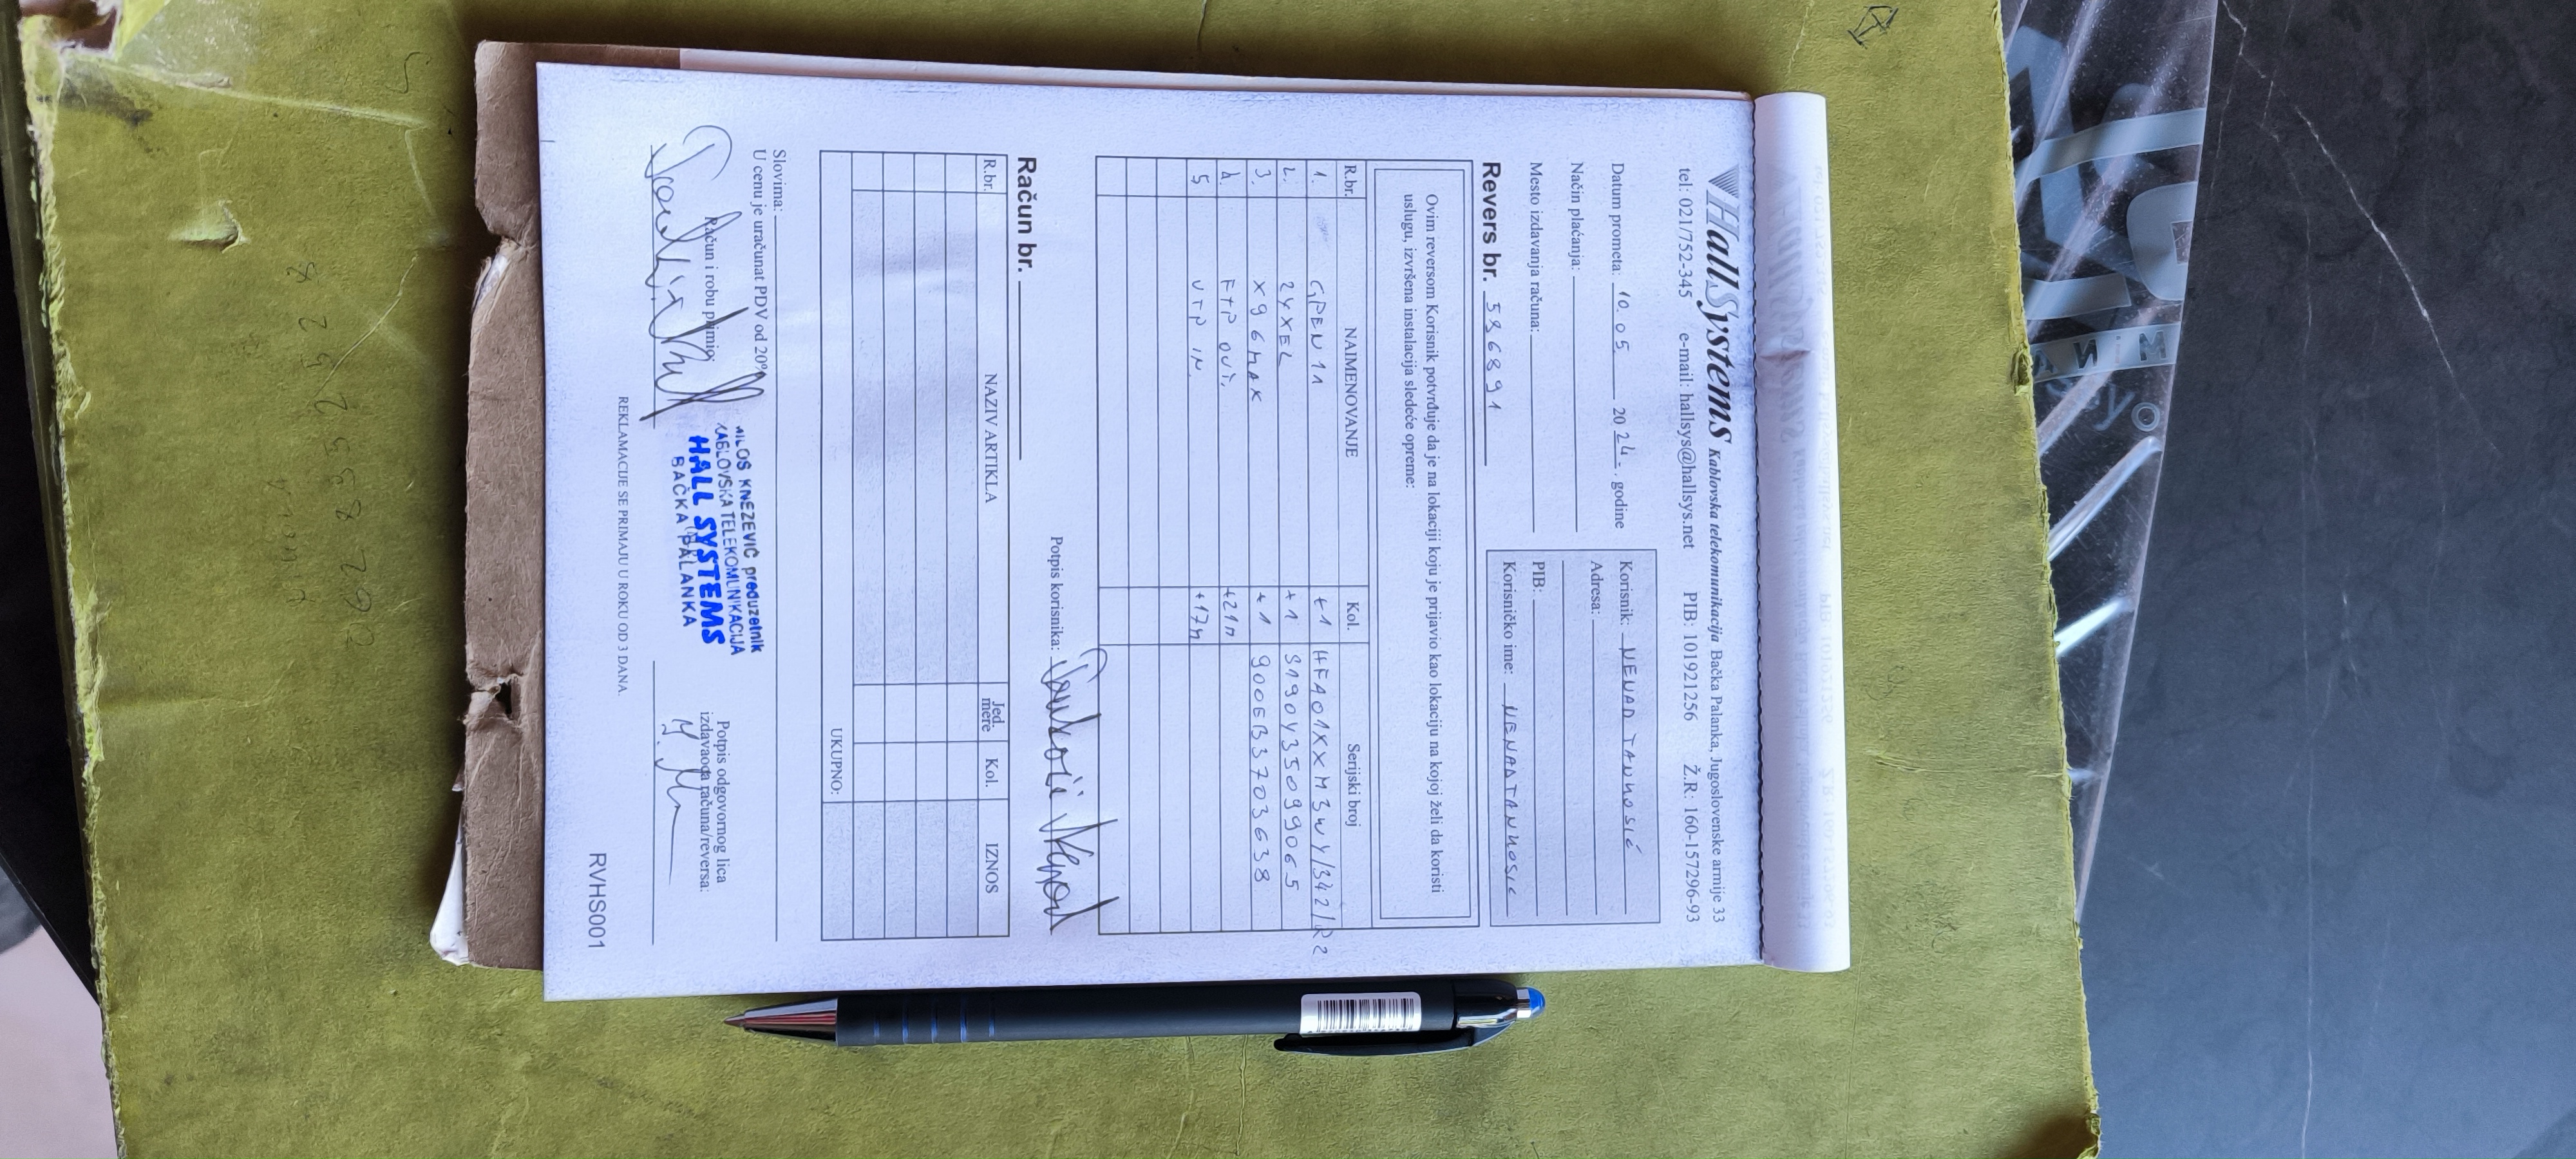 HallSystems Kablovska telekomunikacija Bačka Palanka, Jugoslovenske armije 33
tel: 021/752-345 e-mail: hallsys@hallsys.net PIB: 101921256 Ž.R: 160-157296-93
Datum prometa: 10.05 2024. godine
Način plaćanja:
Mesto izdavanja računa:
Korisnik: NENAD TANKOSIĆ
Adresa:
PIB:
Korisničko ime: NENADTANKOSIC
Revers br. 596891
Ovim reversom Korisnik potvrđuje da je na lokaciji koju je prijavio kao lokaciju na kojoj želi da koristi
uslugu, izvršena instalacija sledeće opreme:
R.br. NAIMENOVANJE Kol. Serijski broj
1. GPEN 11 +1 HFA01XXM3WY/342/R2
2. ZYXEL +1 S190Y35099065
3. X96MAX +1 900EB3703638
4. FTP OUT. +21m
5 UTP IN. +17m
Potpis korisnika: Tankosić Nenad
Račun br.
R.br. NAZIV ARTIKLA Jed. mere Kol. IZNOS
UKUPNO:
Slovima:
U cenu je uračunat PDV od 20%
Račun i robu primio:
MILOS KNEZEVIĆ preduzetnik
KABLOVSKA TELEKOMUNIKACIJA
HALL SYSTEMS
BAČKA PALANKA
Potpis odgovornog lica
izdavaoca računa/reversa:
REKLAMACIJE SE PRIMAJU U ROKU OD 3 DANA.
RVHS001